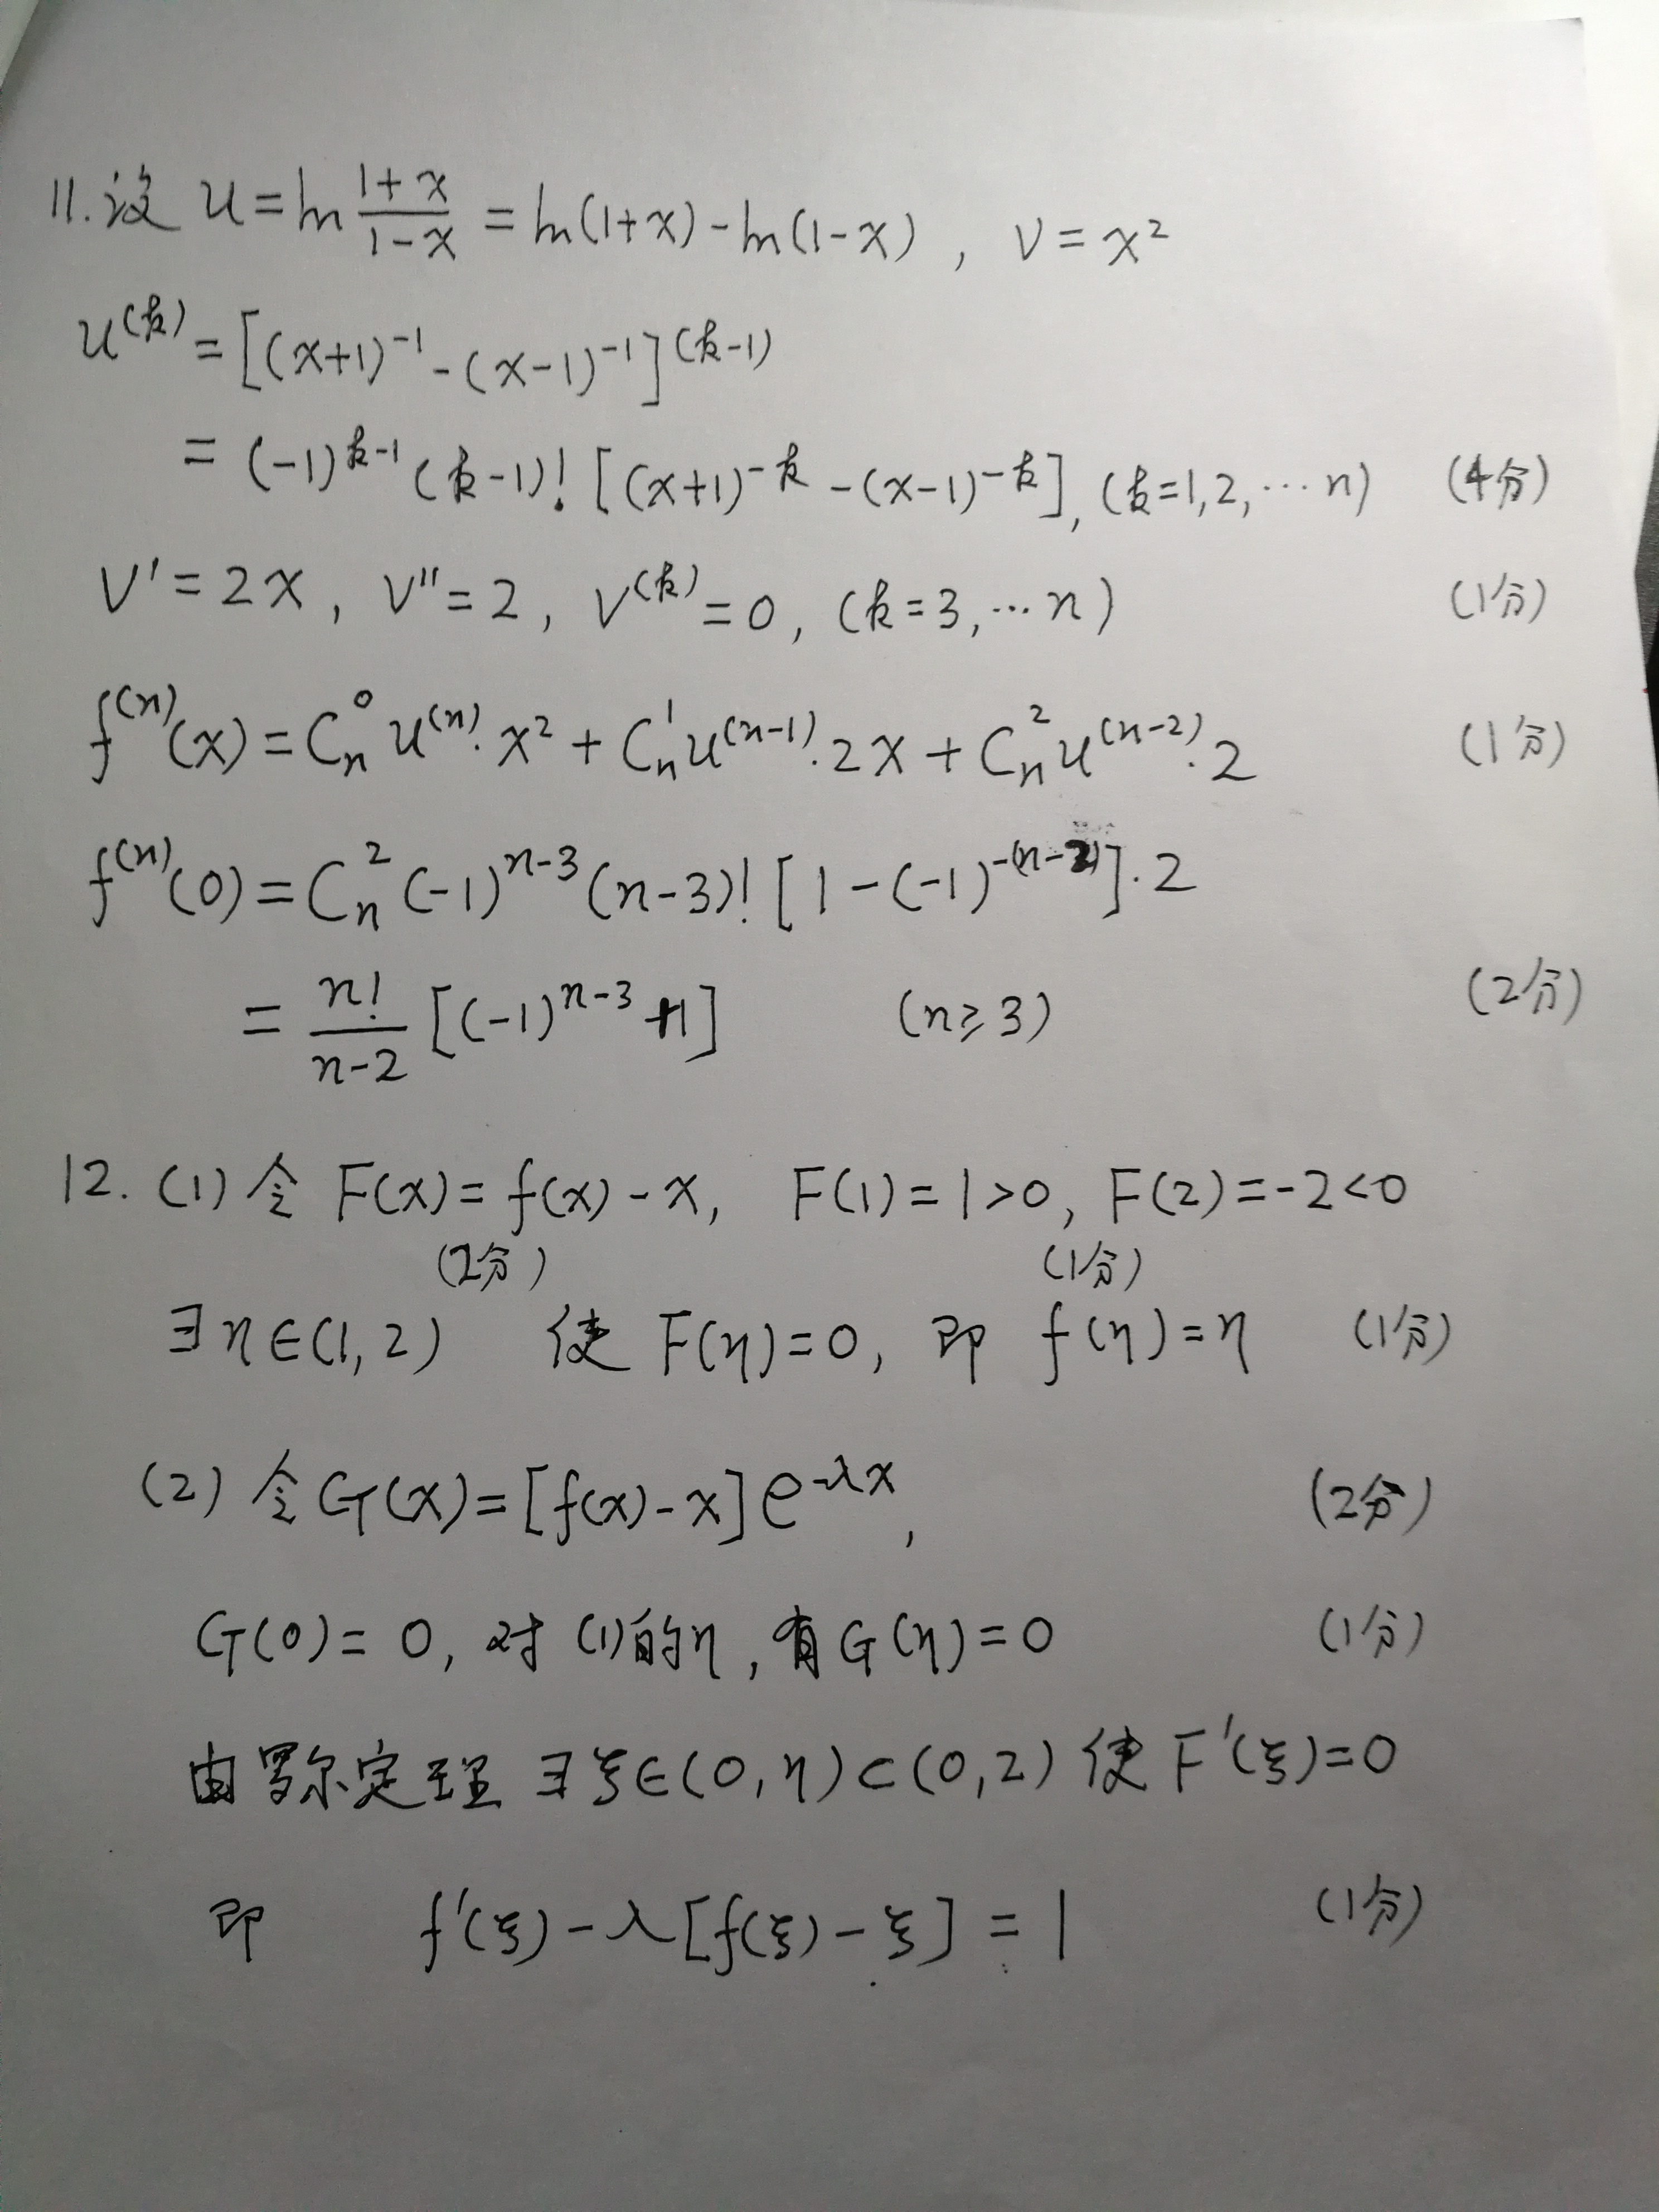 11. 设 u = ln (1+x)/(1-x) = ln(1+x) - ln(1-x), v = x²
u^(k) = [(x+1)^-1 - (x-1)^-1]^(k-1)
= (-1)^k-1 (k-1)! [(x+1)^-k - (x-1)^-k], (k=1,2,…n) (4分)
v' = 2x, v'' = 2, v^(k) = 0, (k=3,…n) (1分)
f^(n)(x) = C_n^0 u^(n)·x² + C_n^1 u^(n-1)·2x + C_n^2 u^(n-2)·2 (1分)
f^(n)(0) = C_n^2 (-1)^n-3 (n-3)! [1-(-1)^-(n-2)]·2
= n!/(n-2) [(-1)^n-3 +1] (n≥3) (2分)
12. (1) 令 F(x) = f(x) - x, F(1) = 1 > 0, F(2) = -2 < 0
(2分) (1分)
∃η∈(1,2) 使 F(η)=0, 即 f(η)=η (1分)
(2) 令 G(x) = [f(x)-x]e^-λx, (2分)
G(0) = 0, 对(1)的η, 有G(η)=0 (1分)
由罗尔定理 ∃ξ∈(0,η)⊂(0,2) 使 F'(ξ)=0
即 f'(ξ) - λ[f(ξ) - ξ] = 1 (1分)